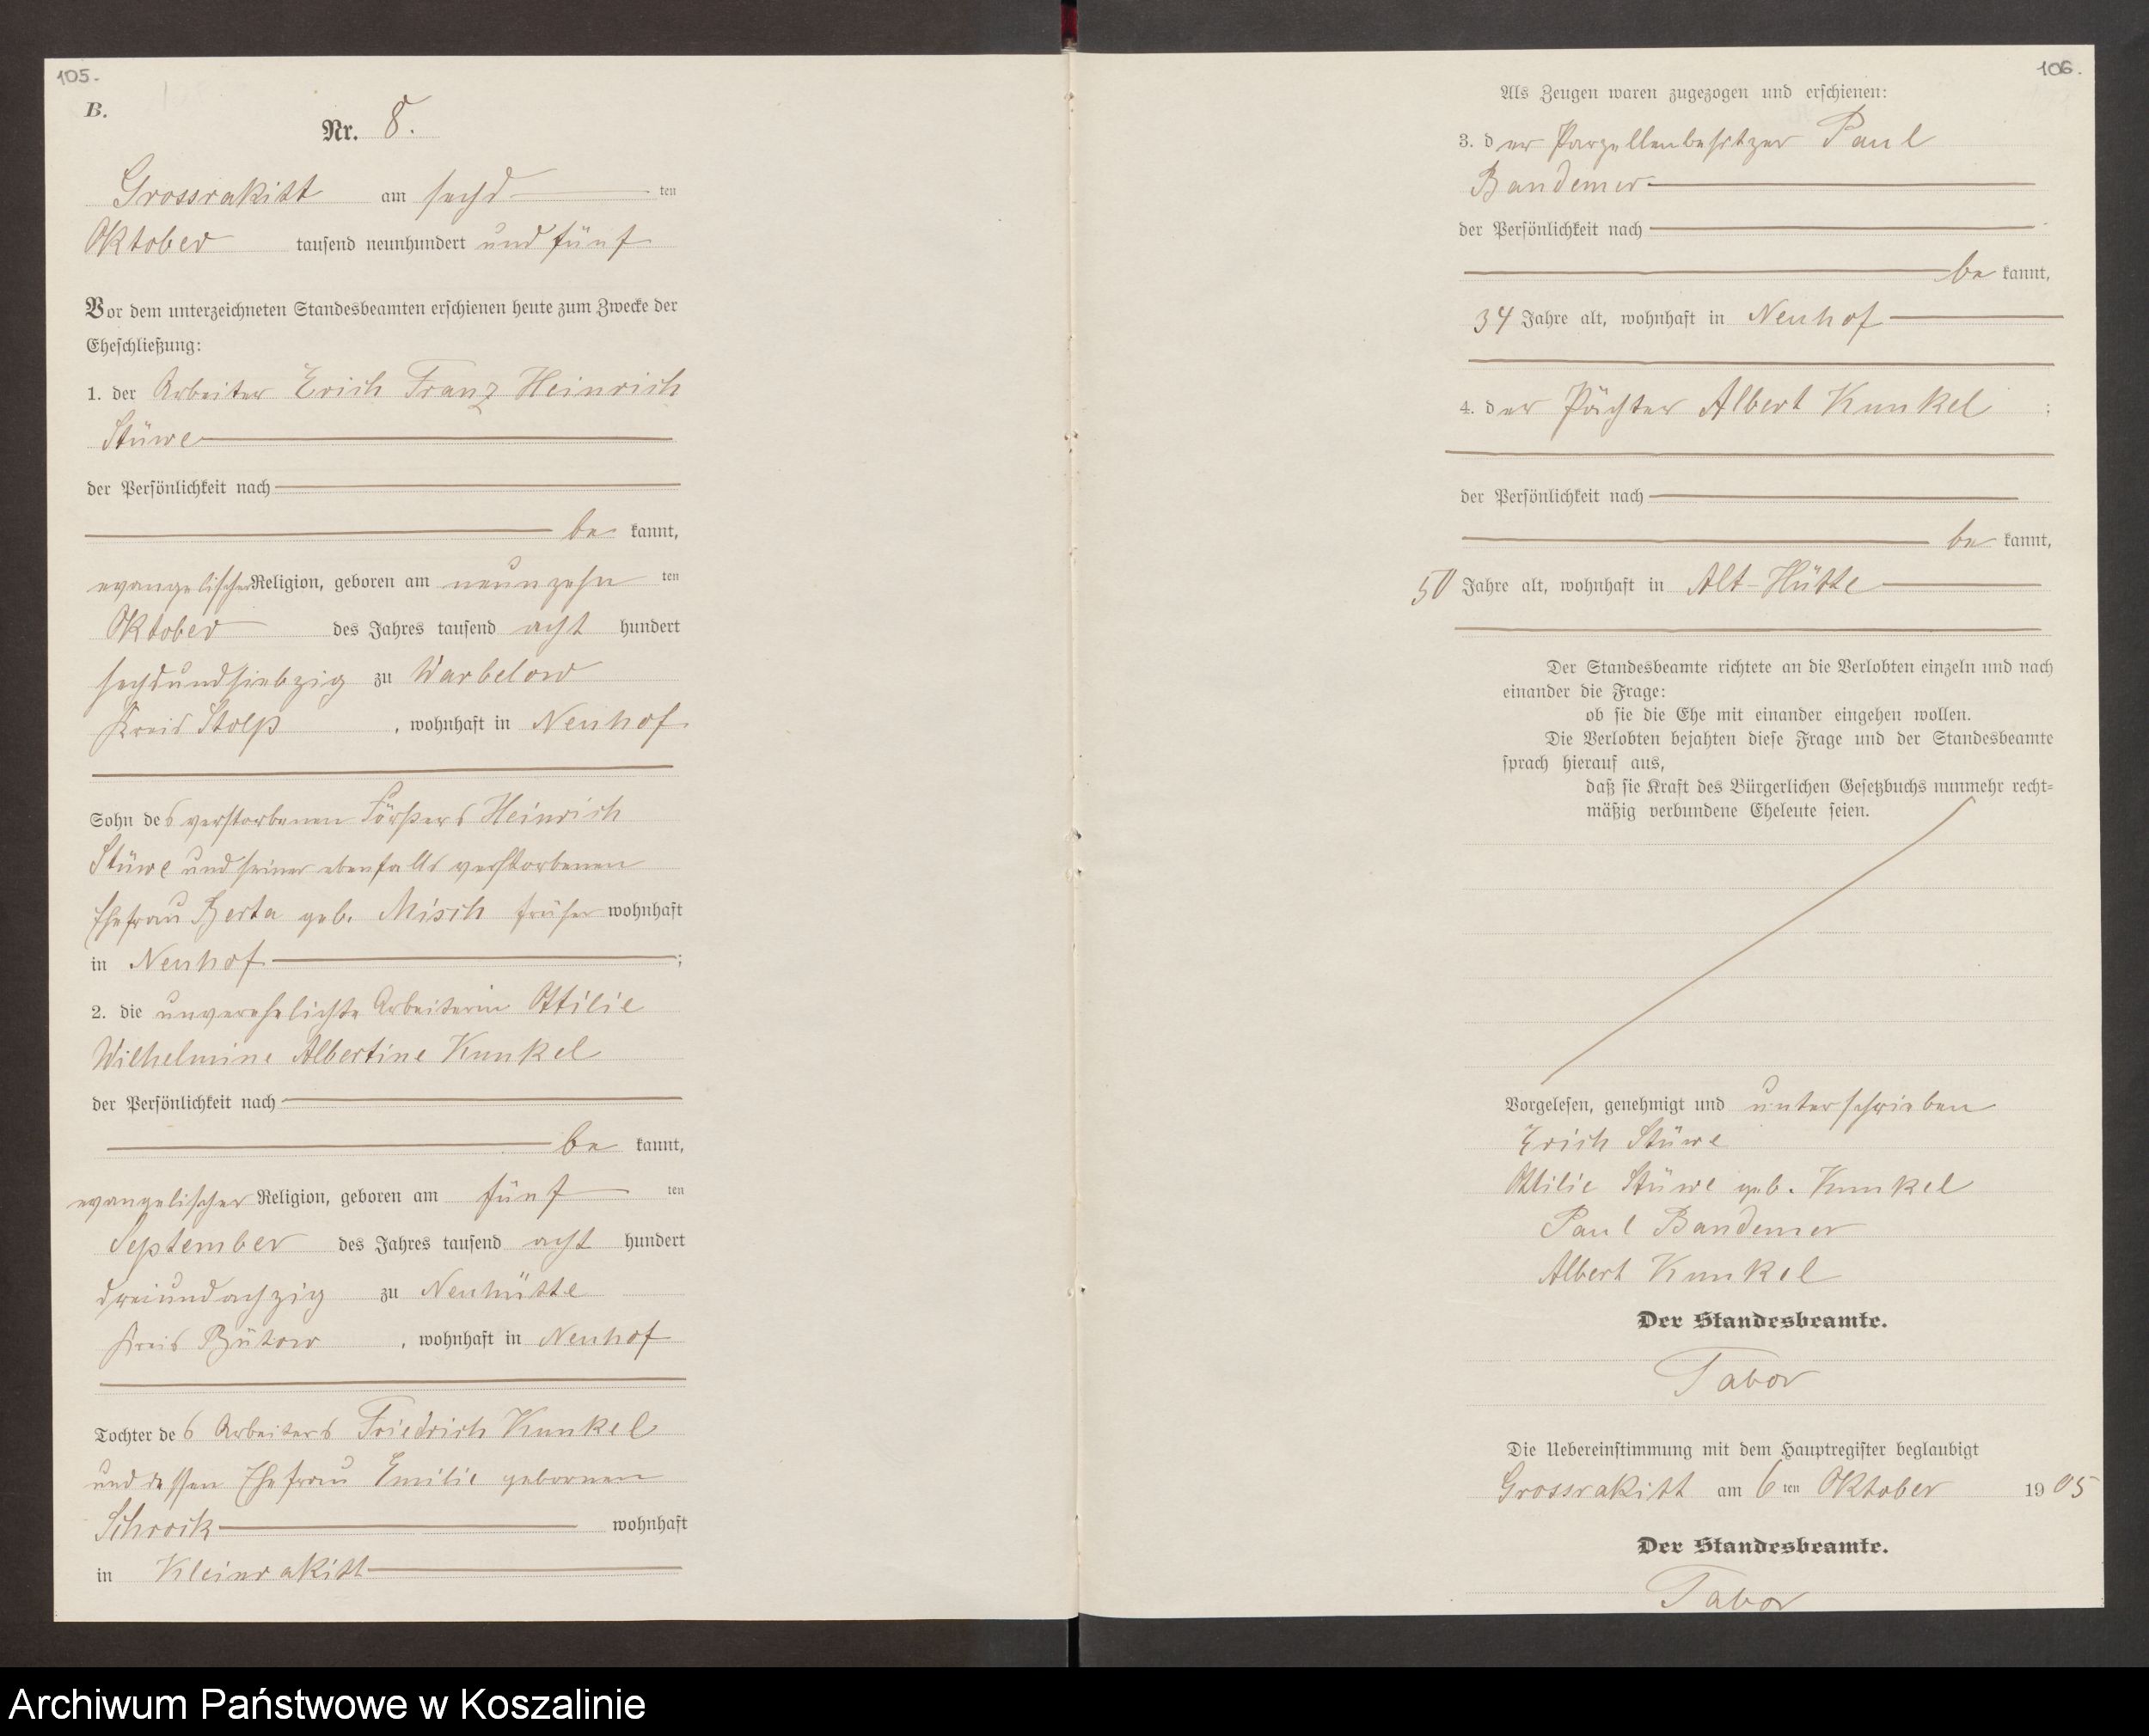 105.
B.
Nr. 8.
Grossrakitt am sechs ten
Oktober tausend neunhundert und fünf
Vor dem unterzeichneten Standesbeamten erschienen heute zum Zwecke der
Eheschließung:
1. der Arbeiter Erich Franz Heinrich
Stüwe
der Persönlichkeit nach
be kannt,
evangelischer Religion, geboren am neunzehn ten
Oktober des Jahres tausend acht hundert
sechsundsiebzig zu Warbelow
Kreis Stolp, wohnhaft in Neuhof
Sohn des verstorbenen Försters Heinrich
Stüwe und seiner ebenfalls verstorbenen
Ehefrau Berta geb. Misch früher wohnhaft
in Neuhof ;
2. die unverehelichte Arbeiterin Ottilie
Wilhelmine Albertine Kunkel
der Persönlichkeit nach
be kannt,
evangelischer Religion, geboren am fünf ten
September des Jahres tausend acht hundert
dreiundachzig zu Neuhütte
Kreis Bütow, wohnhaft in Neuhof
Tochter des Arbeiters Friedrich Kunkel
und dessen Ehefrau Emilie gebornen
Schrock wohnhaft
in Kleinrakitt
106.
Als Zeugen waren zugezogen und erschienen:
3. der Parzellenbesitzer Paul
Bandemer
der Persönlichkeit nach
be kannt,
34 Jahre alt, wohnhaft in Neuhof
4. der Pächter Albert Kunkel ;
der Persönlichkeit nach
be kannt,
50 Jahre alt, wohnhaft in Alt-Hütte
Der Standesbeamte richtete an die Verlobten einzeln und nach
einander die Frage:
ob sie die Ehe mit einander eingehen wollen.
Die Verlobten bejahten diese Frage und der Standesbeamte
sprach hierauf aus,
daß sie Kraft des Bürgerlichen Gesetzbuchs nunmehr recht-
mäßig verbundene Eheleute seien.
Vorgelesen, genehmigt und unterschrieben
Erich Stüwe
Ottilie Stüwe geb. Kunkel
Paul Bandemer
Albert Kunkel
Der Standesbeamte.
Tabor
Die Uebereinstimmung mit dem Hauptregister beglaubigt
Grossrakitt am 6 ten Oktober 1905
Der Standesbeamte.
Tabor
Archiwum Państwowe w Koszalinie